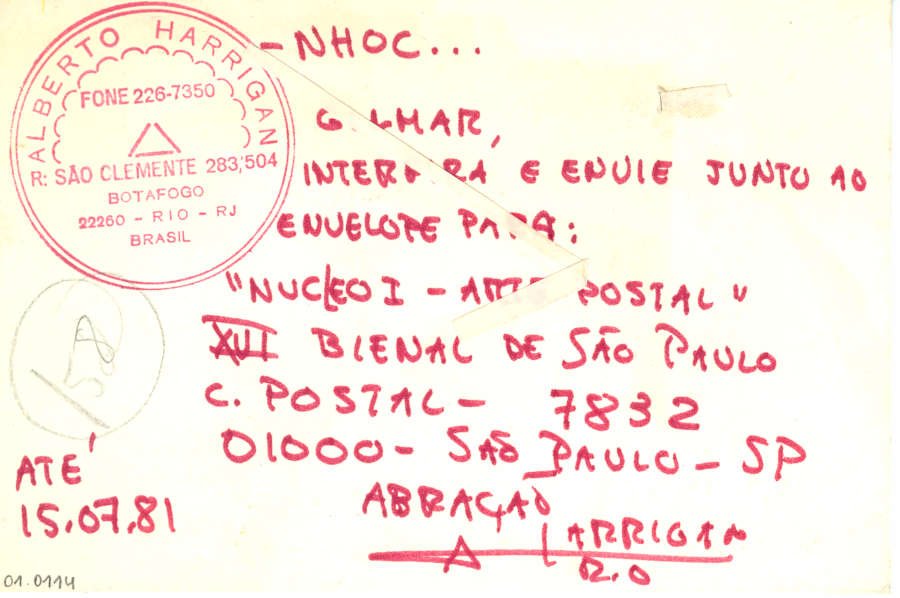 ALBERTO HARRIGAN
FONE 226-7350
R: SÃO CLEMENTE 283,504
BOTAFOGO
22260 - RIO - RJ
BRASIL
- NHOC...
G LMAR,
INTERF RA E ENVIE JUNTO AO
ENVELOPE PARA:
"NUCLEO I - ARTE POSTAL"
XVI BIENAL DE SÃO PAULO
C. POSTAL - 7832
01000 - SÃO PAULO - SP
158
ATÉ
15.07.81
ABRAÇÃO
HARRIGAN
R.O
01.0114